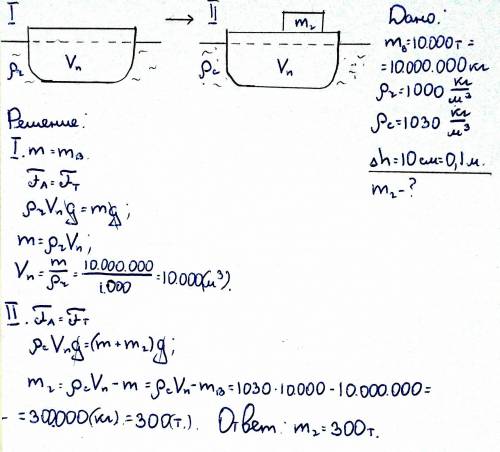 I → II
m₂
ρ₂ Vп
ρс Vп
Дано:
mв=10.000т=
=10.000.000кг
ρ₂=1000 кг/м³
ρс=1030 кг/м³
Δh=10см=0,1м.
m₂-?
Решение:
I. m=mв.
FА=FТ
ρ₂Vпg=mg;
m=ρ₂Vп;
Vп=m/ρ₂=10.000.000/1.000=10.000(м³).
II. FА=FТ
ρсVпg=(m+m₂)g;
m₂=ρсVп-m=ρсVп-mв=1030·10.000-10.000.000=
=300.000(кг).=300(т.). Ответ: m₂=300т.